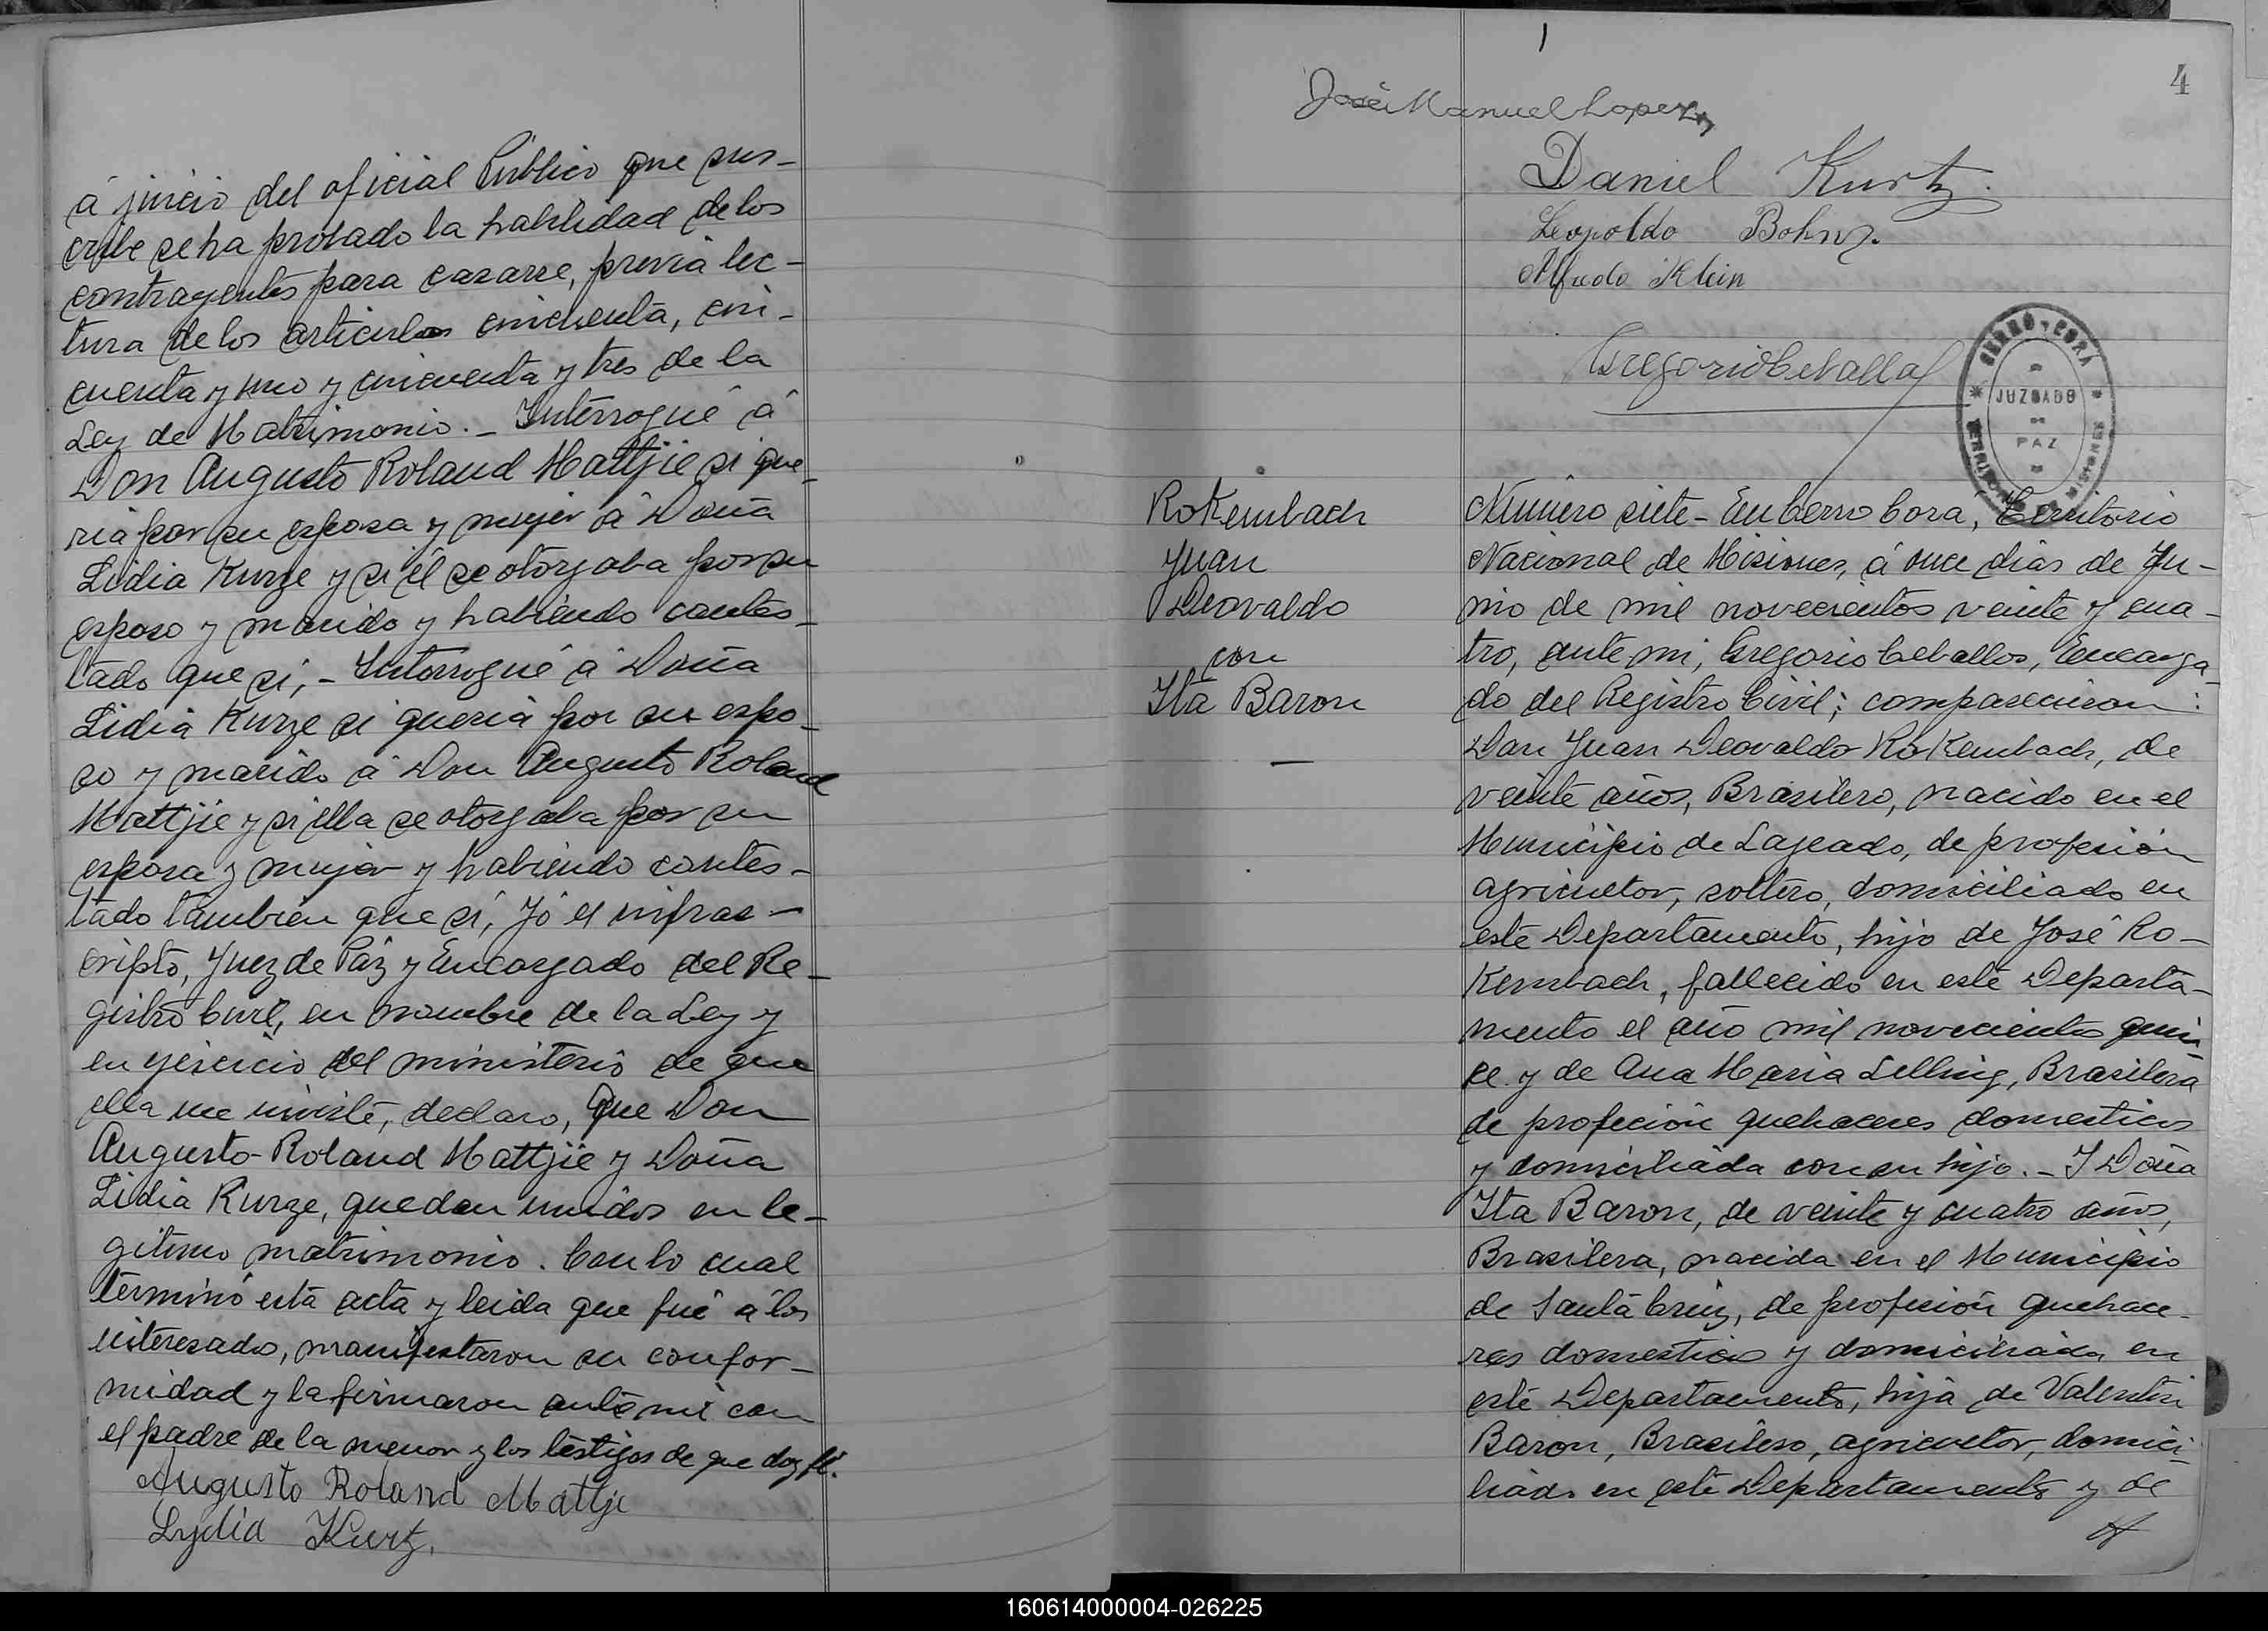 á juicio del oficial Público que sus-
cribe se ha probado la habilidad de los
contrayentes para casarse, previa lec-
tura de los articulos cincuenta, cin-
cuenta y uno y cincuenta y tres de la
Ley de Matrimonio.- Interrogué á
Don Augusto Roland Mattjie si que-
ria por su esposa y mujer á Doña
Lidia Kurze y si él se otorgaba por su
esposo y marido y habiendo contes-
tado que si,- Interrogué á Doña
Lidia Kurze si queria por su espo-
so y marido á Don Augusto Roland
Mattjie y si ella se otorgaba por su
esposa y mujer y habiendo contes-
tado tambien que si, Yó el infras-
cripto, Juez de Páz y Encargado del Re-
gistro Civil, en nombre de la Ley y
en ejercicio del ministerio de que
ella me inviste, declaro, que Don
Augusto Roland Mattjie y Doña
Lidia Kurze, quedan unidos en le-
gitimo matrimonio. Con lo cual
terminó esta acta y leida que fué a los
interesado, manifestaron su confor-
midad y la firmaron ante mi con
el padre de la menor y los testigos de que doy fé.
Augusto Roland Mattje
Lydia Kurtz.
4
José Manuel Lopez
Daniel Kurtz.
Leopoldo Bohnz.
Alfredo Klein
Gregorio Ceballos
CERRO-CORÁ
JUZGADO
PAZ
RoKembach
Juan
Deovaldo
con
Ita Baron
Número siete- En Cerro Corá, Territorio
Nacional de Misiones, á once dias de Ju-
nio de mil novecientos veinte y cua-
tro, ante mi, Gregorio Ceballos, Encarga-
do del Registro Civil; comparecieron:
Don Juan Deovaldo RoKembach, de
veinte años, Brasilero, nacido en el
Municipio de Lageado, de profesión
agricultor, soltero, domiciliado en
este Departamento, hijo de José Ro-
Kembach, fallecido en este Departa-
mento el año mil novecientos quin-
ce y de Ana Maria Lelling, Brasilera
de profeción quehaceres domesticos
y domiciliada con su hijo.- Y Doña
Ita Baron, de veinte y cuatro años,
Brasilera, nacida en el Municipio
de Santa Cruz, de profesión quehace-
res domesticos y domiciliada en
este Departamento, hija de Valentin
Baron, Brasilero, agricultor, domici-
liado en este Departamento y de
160614000004-026225